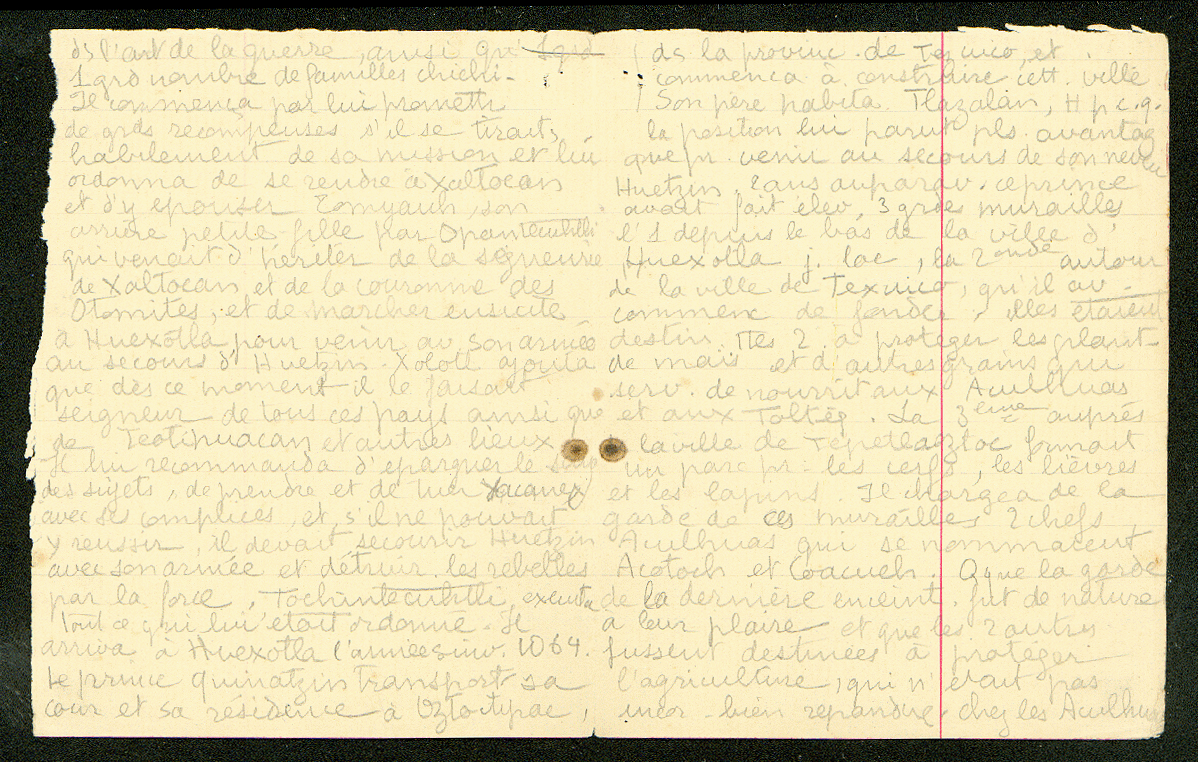 ds l'art de la guerre, ainsi qu'
1 grd nombre de familles chichi-
Il commença par lui promettre
de grds recompenses s'il se tirait
habilement de sa mission et lui
ordonna de se rendre à Xaltocan
et d'y épouser Tomyauh son
arrière petite-fille par Opantecuhtli
qui venait d'hériter de la seigneurie
de Xaltocan et de la couronne des
Otomites, et de marcher ensuite
à Huexotla pour venir av son armée
au secours d'Huetzin. Xolotl ajouta
que dès ce moment il le faisait
seigneur de tous ces pays ainsi que
de Teotihuacan et autres lieux
Il lui recommanda d'épargner le sang
des sujets, de prendre et de tuer Yacanex
avec ses complices et, s'il ne pouvait
y réussir, il devait secourir Huetzin
avec son armée et détruir. les rebelles
par la force, Tochintecuhtli executa
tout ce qui lui était ordonné. Il
arriva à Huexotla l'année suiv. 1064.
Le prince Quinatzin transport. sa
cour et sa résidence à Oztoticpac,
ds la provinc. de Tezcuco, et
commença à construire cett ville
Son père habita Tlazalan, H p. c. q.
la position lui parut pls. avantag
que pr. venir au secours de son neveu
Huetzin, 2 ans auparav. ce prince
avait fait élev. 3 grdes murailles
l'1 depuis le bas de la ville d'
Huexotla j. lac, la 2onde autour
de la ville de Texcuco, qu'il av.
commenc de fonder, elles étaient
destin. ttes 2 à protéger les plant.
de mais et d'autres grains qui
serv. de nourrit aux Aculhuas
et aux Toltèq. La 3ème auprès
la ville de Tepetlaoztoc formait
un parc pr. les cerfs, les lièvres
et les lapins. Il chargea de la
garde de ces murailles 2 chefs
Aculhuas qui se nommaient
Acotoch et Coacuch. Qque la garde
de la dernière enceint. fut de nature
à leur plaire et que les 2 autres
fussent destinées à protéger
l'agriculture, qui n'était pas
encor. bien répandue chez les Aculhuas